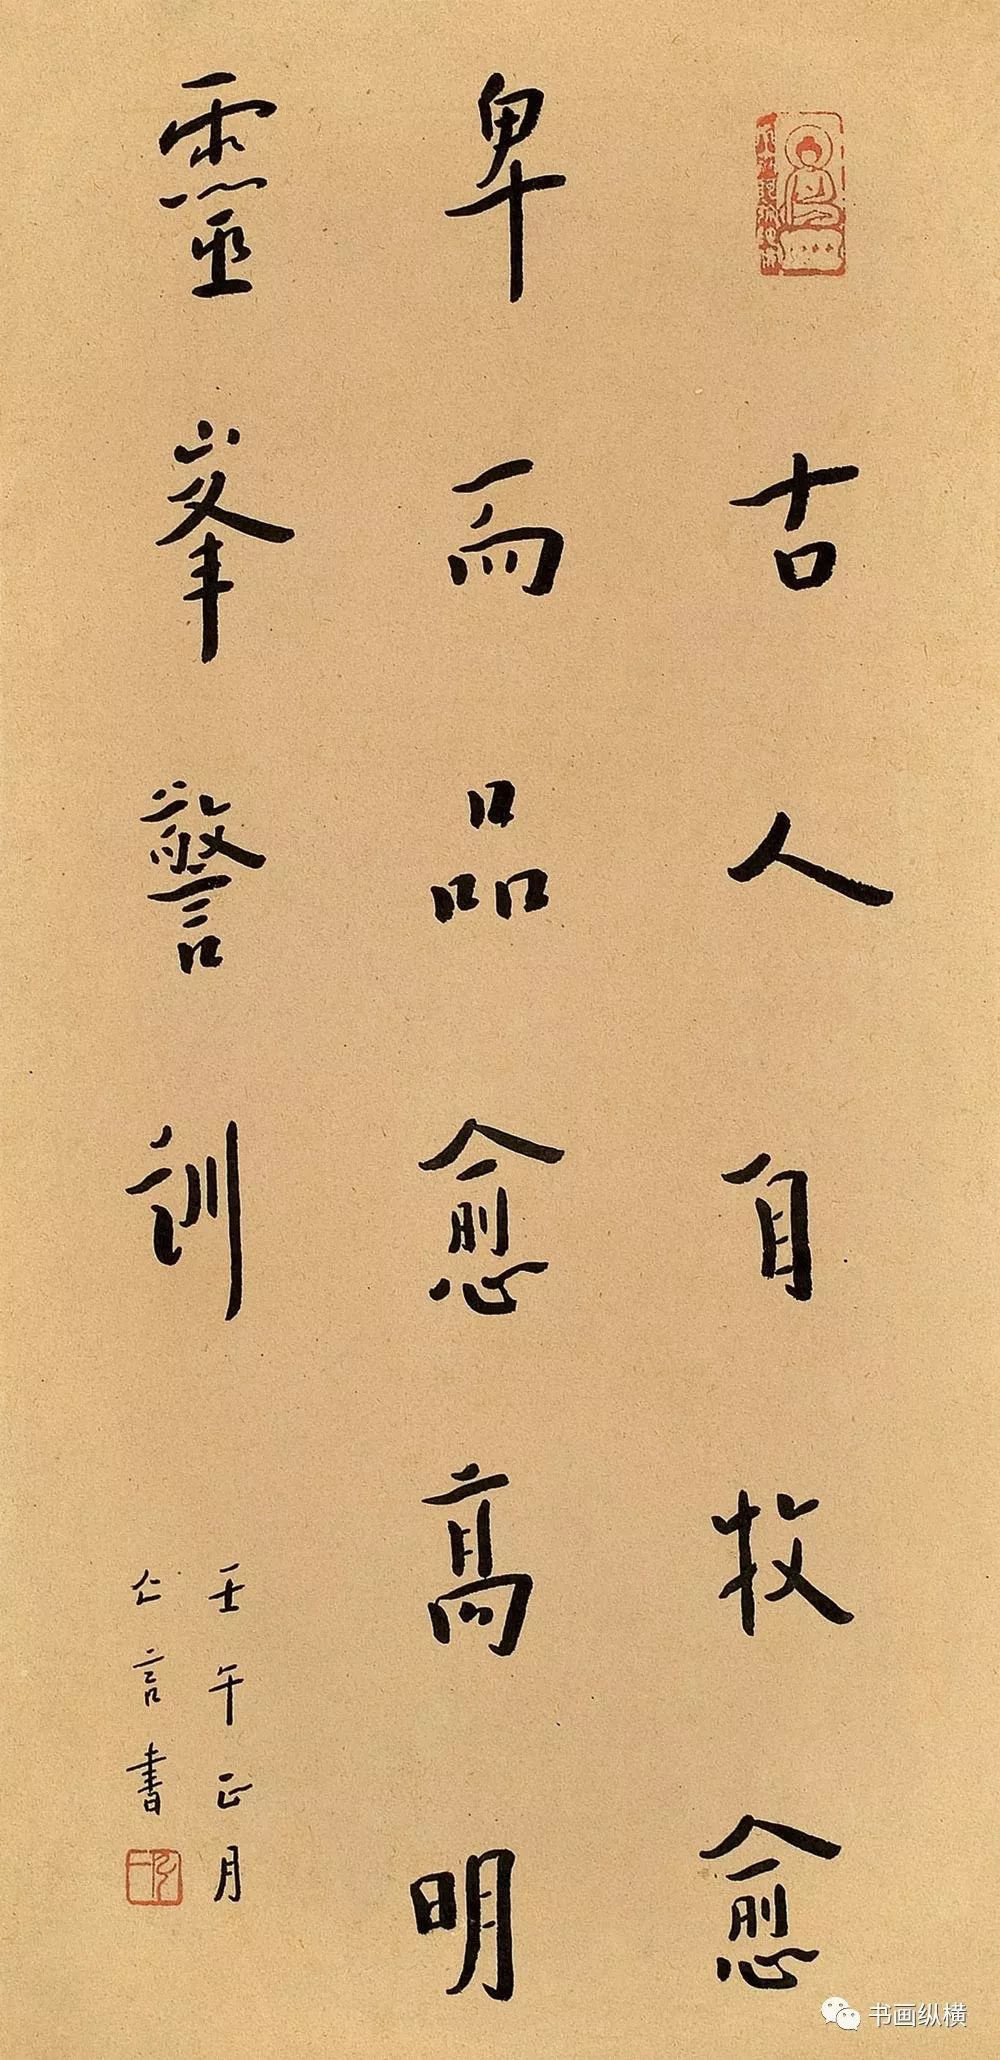 古人自牧愈
卑而品愈高明
靈峯警訓
壬午正月
亼言書
书画纵横